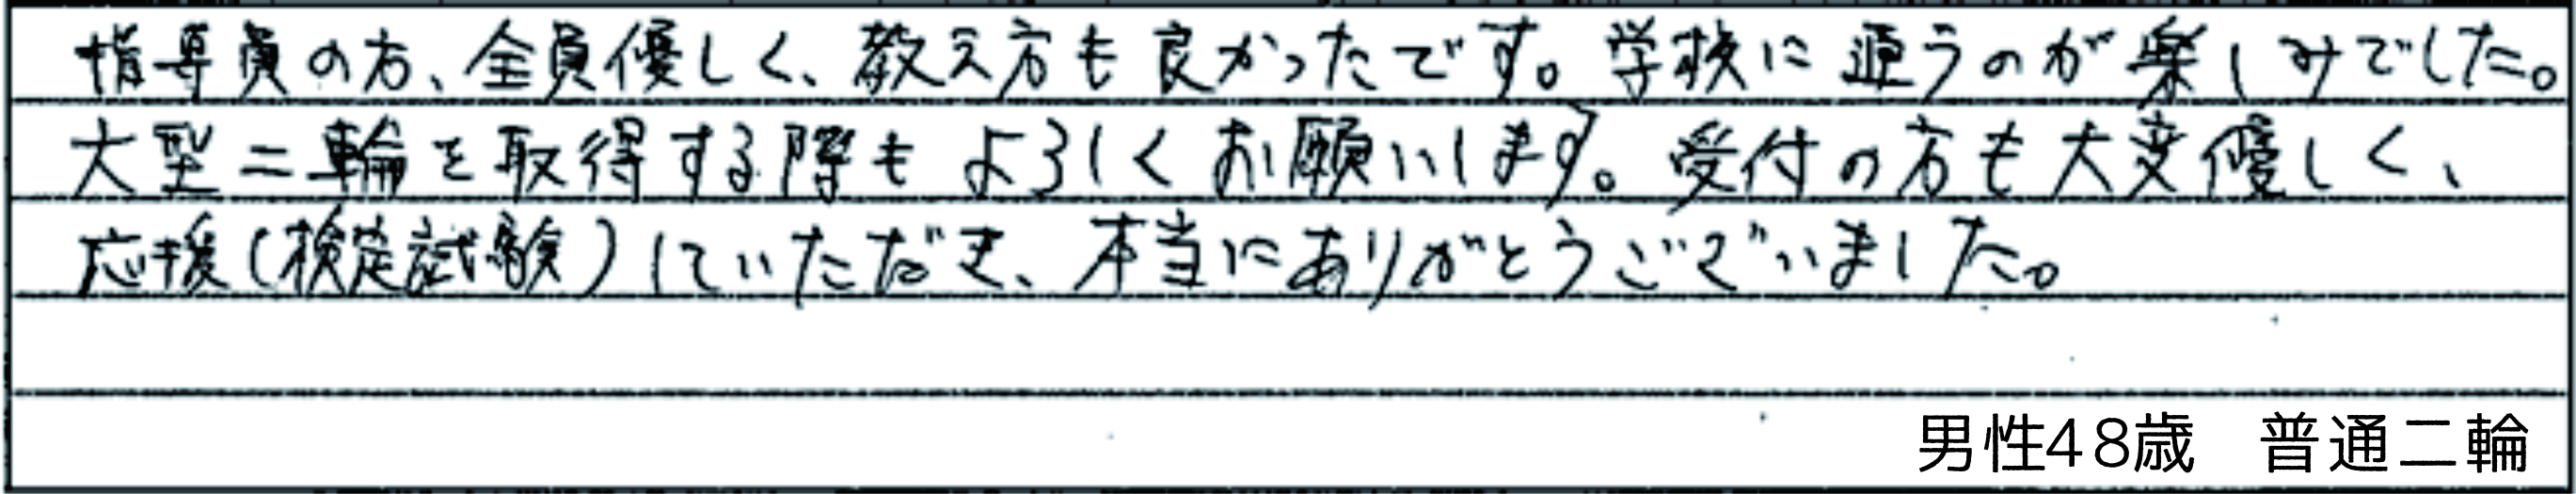 指導員の方、全員優しく、教え方も良かったです。学校に通うのが楽しみでした。
大型二輪を取得する際もよろしくお願いします。受付の方も大変優しく、
応援(検定試験)していただき、本当にありがとうございました。
男性48歳　普通二輪